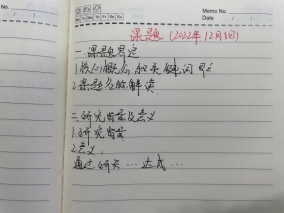 Memo No.
Date
课题 (2022年12月3日)
一.课题界定
1.核心概念和关键词界定
2.课题名的解读
二.研究背景及意义
1.研究背景
2.意义
通过研究…达成…